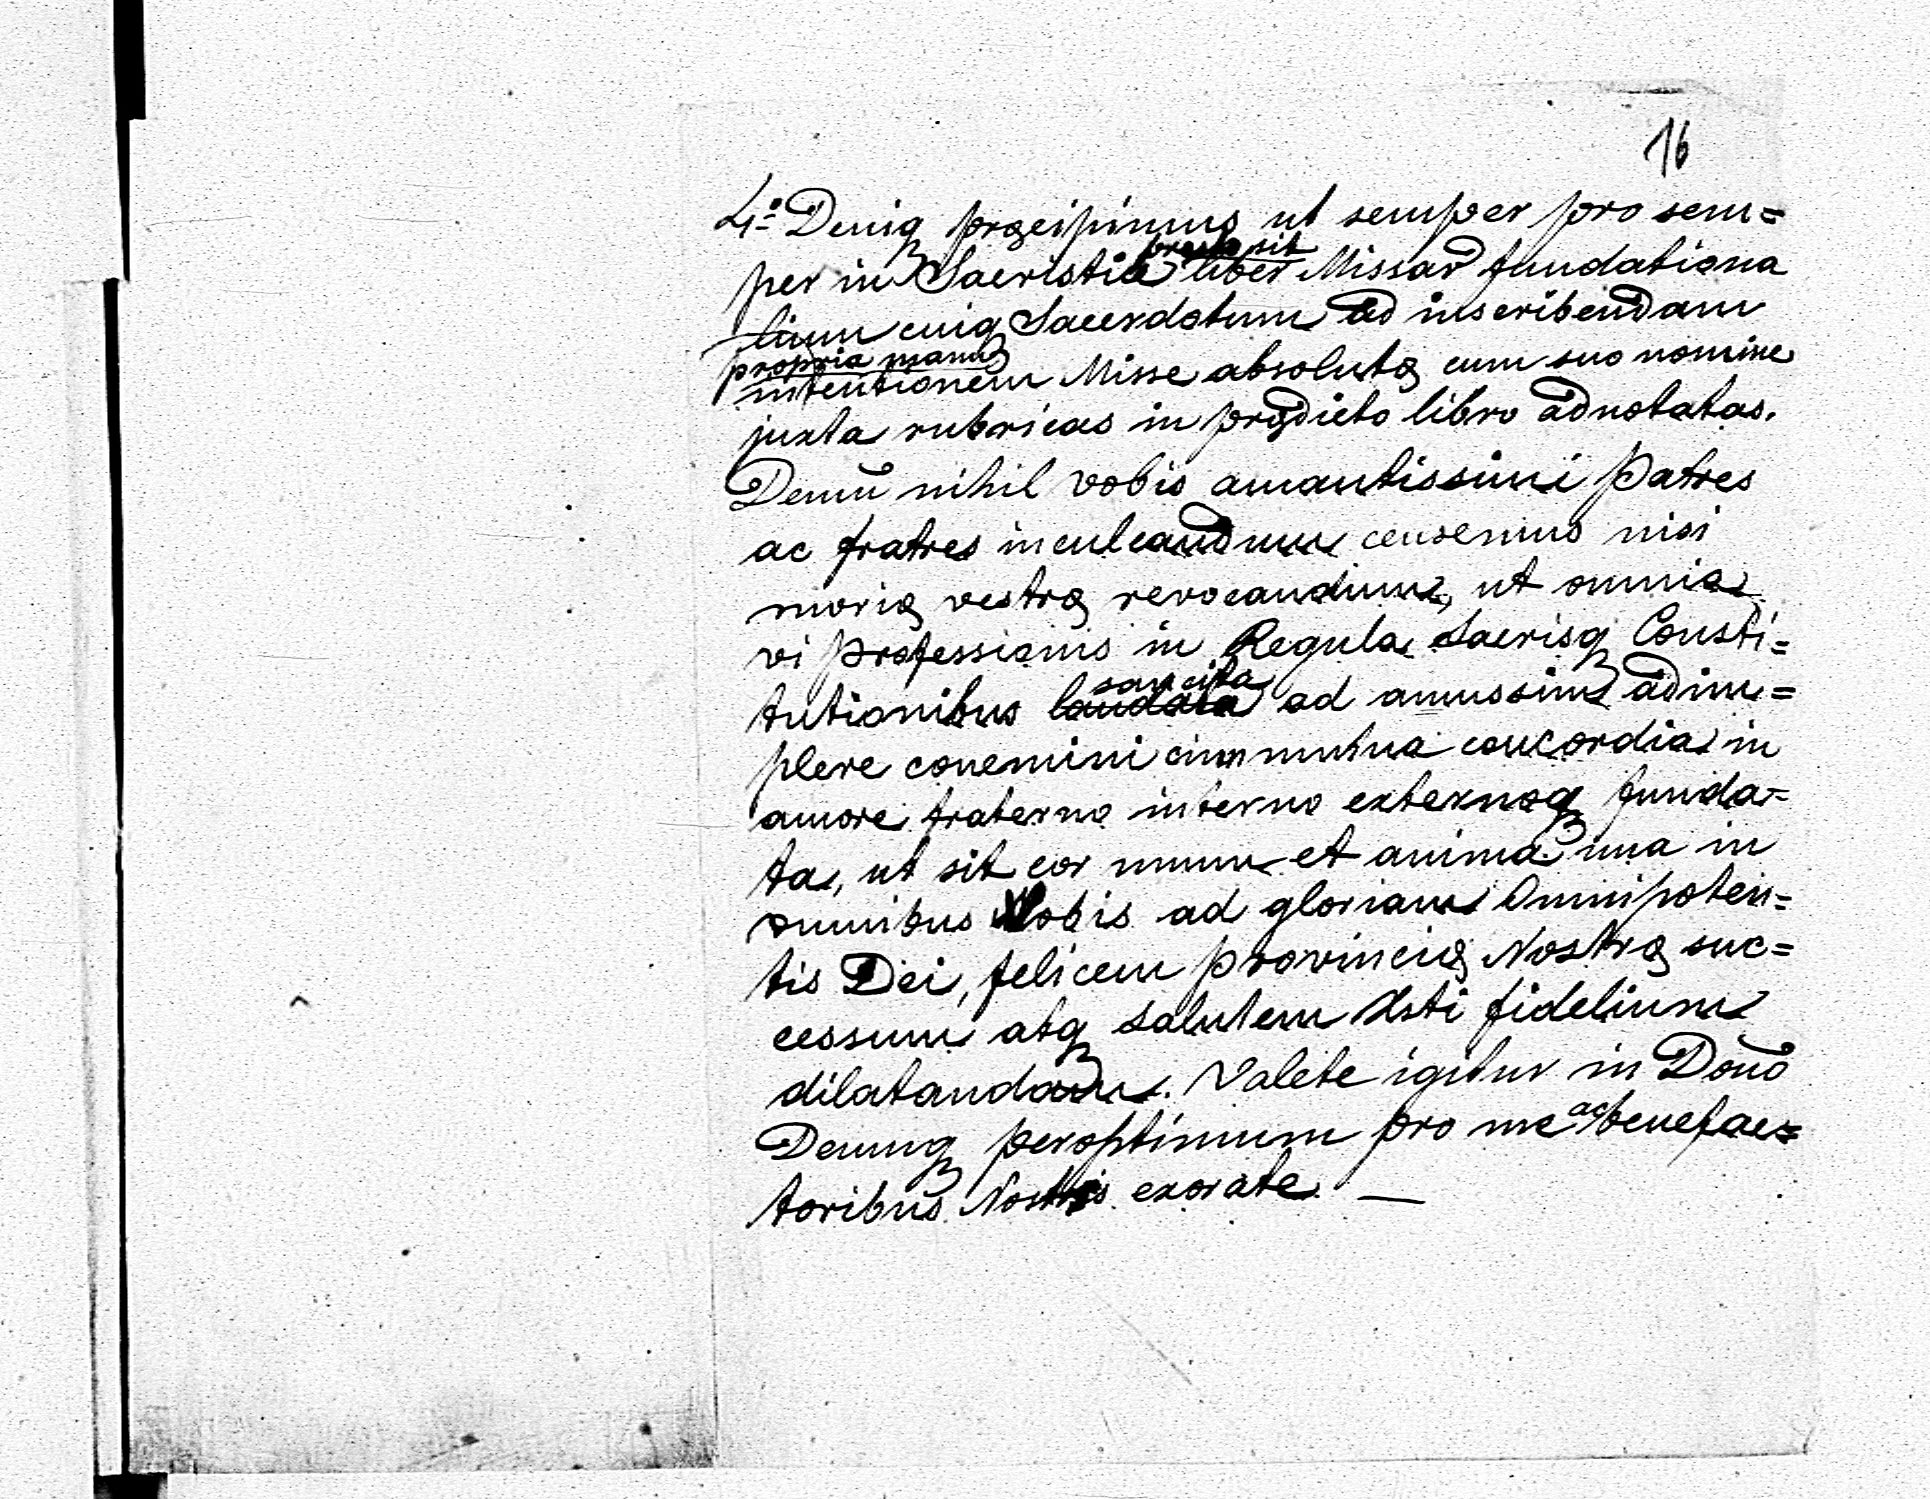 16
4º Deniq præcipimus ut semper pro sem=
per in Sacristia presto sit liber Missar fundationa
lium cuiq Sacerdotum ad inscribendam
propria manu
intentionem Misse absolutę cum suo nomine
juxta rubricas in prędicto libro adnotatas.
Demū nihil vobis amantissimi Patres
ac fratres inculcandum censemus nisi
morię vestrę revocandum, ut omnia
vi professionis in Regula Sacrisq Consti=
tutionibus laudata sancita ad amussim adim=
plere conemini cum mutua concordia in
amore fraterno interno externoq funda=
ta, ut sit cor unum et anima una in
omnibus Vobis ad gloriam Omnipoten=
tis Dei, felicem provincię Nostrę suc=
cessum atq salutem Xsti fidelium
dilatandam. Valete igitur in Dōno
Deumq peroptimum pro me ac benefac=
toribus Nostris exorate. —